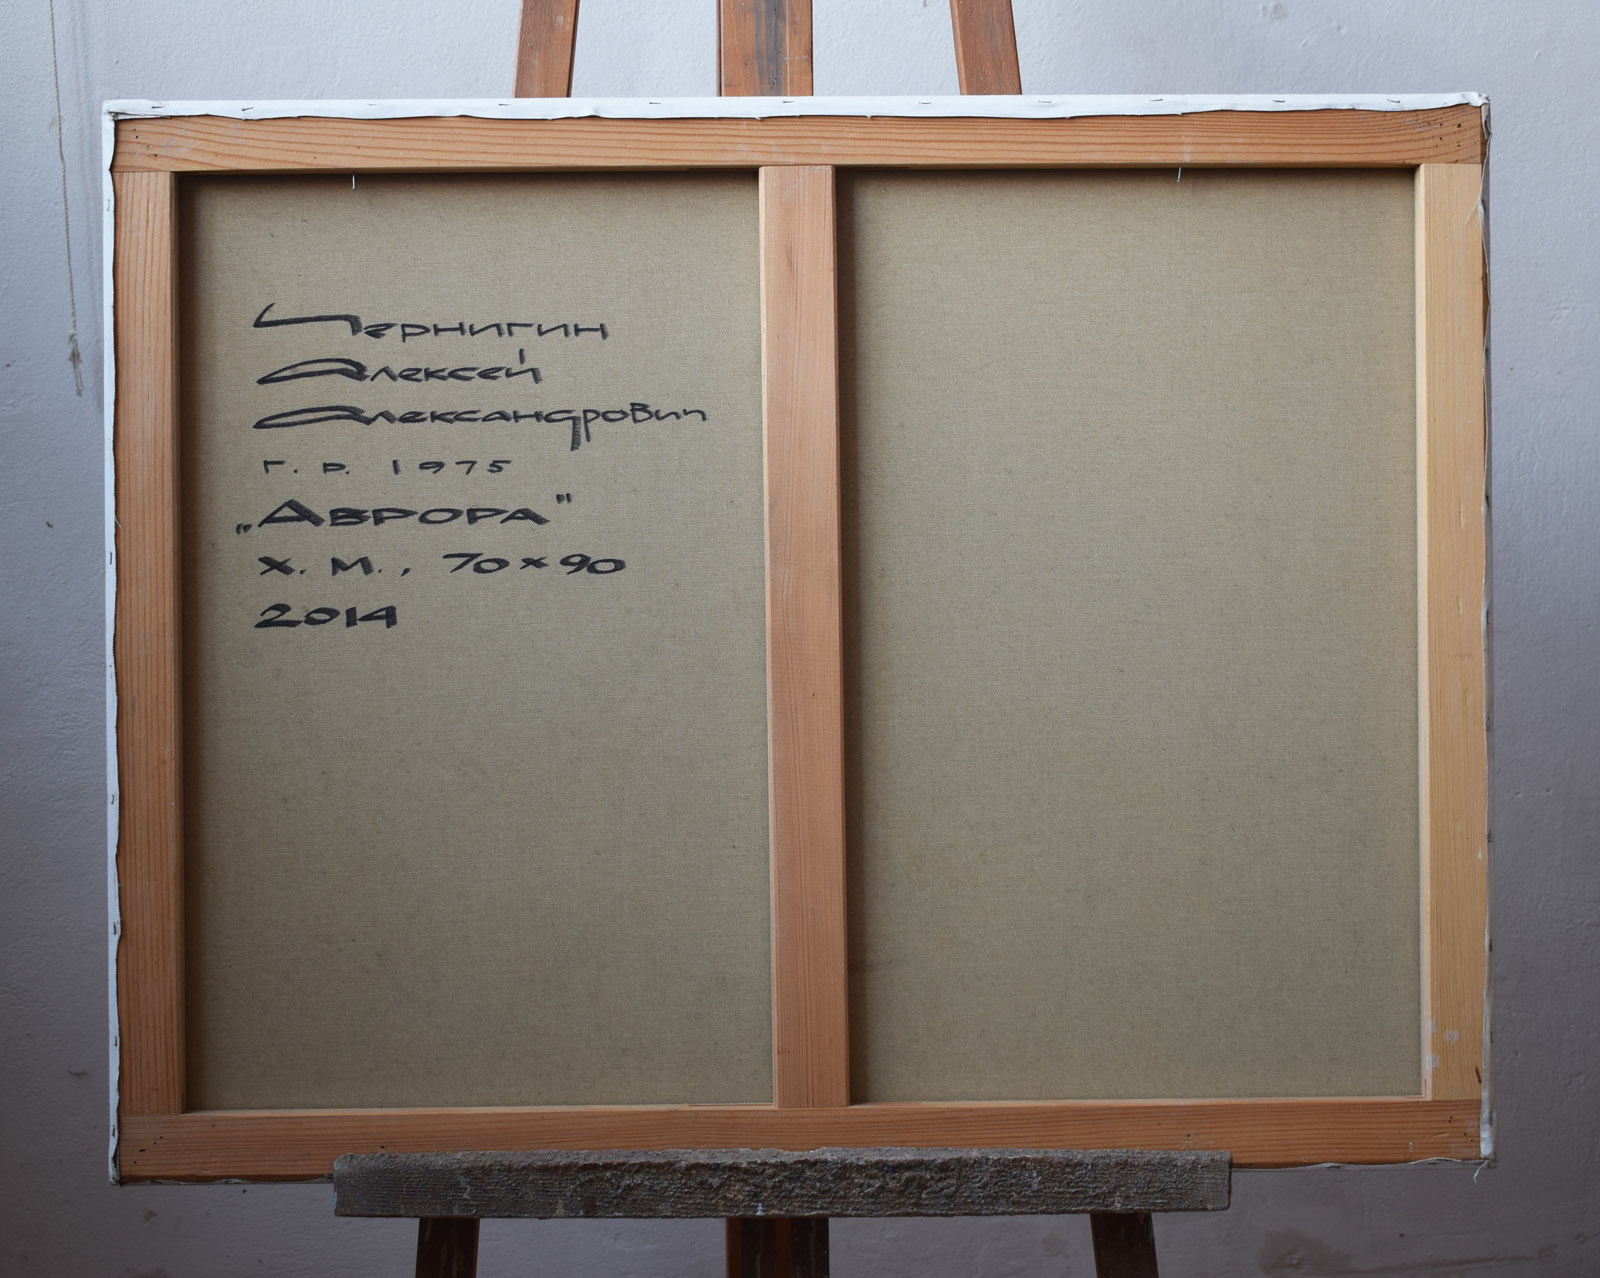 Чернигин
Алексей
Александрович
г. р. 1975
„Аврора"
х. м., 70×90
2014